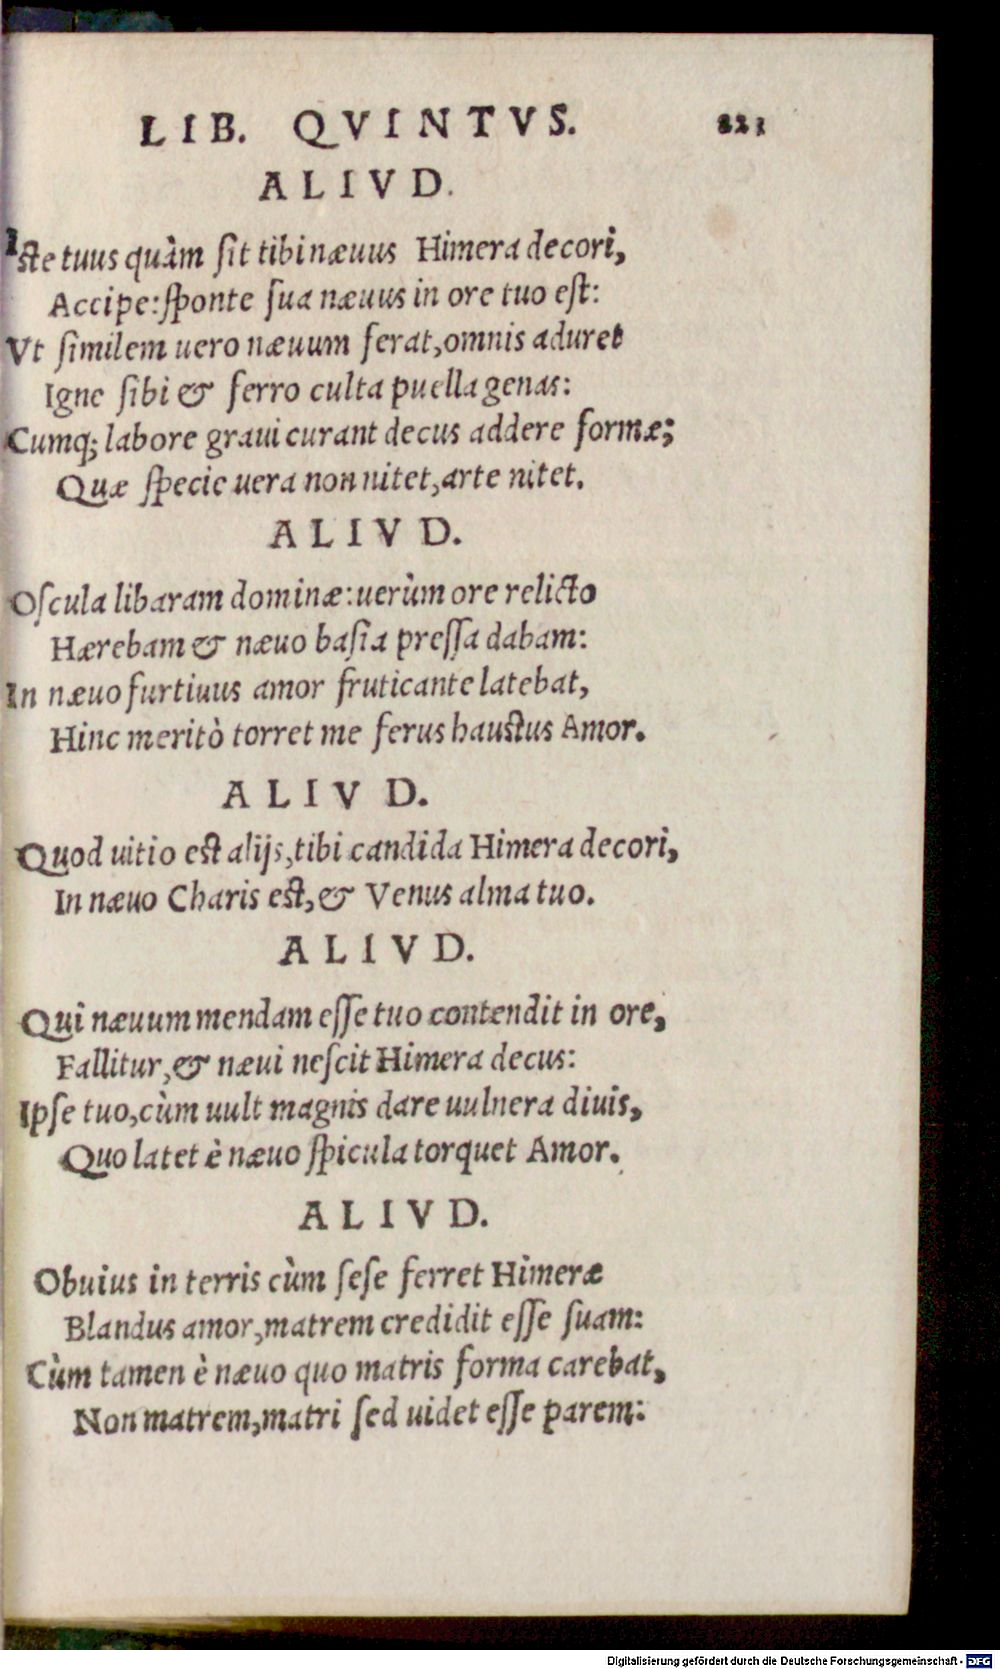 LIB. QVINTVS. 221
ALIVD.
Iste tuus quàm sit tibi næuus Himera decori,
Accipe: sponte sua næuus in ore tuo est:
Vt similem uero næuum ferat, omnis aduret
Igne sibi & ferro culta puella genas:
Cumq; labore graui curant decus addere formæ;
Quæ specie uera non nitet, arte nitet.
ALIVD.
Oscula libaram dominæ: uerùm ore relicto
Hærebam & næuo basia pressa dabam:
In næuo furtiuus amor fruticante latebat,
Hinc meritò torret me ferus haustus Amor.
ALIVD.
Quod uitio est alijs, tibi candida Himera decori,
In næuo Charis est, & Venus alma tuo.
ALIVD.
Qui næuum mendam esse tuo contendit in ore,
Fallitur, & næui nescit Himera decus:
Ipse tuo, cùm uult magnis dare uulnera diuis,
Quo latet è næuo spicula torquet Amor.
ALIVD.
Obuius in terris cùm sese ferret Himeræ
Blandus amor, matrem credidit esse suam:
Cùm tamen è næuo quo matris forma carebat,
Non matrem, matri sed uidet esse parem:
Digitalisierung gefördert durch die Deutsche Forschungsgemeinschaft - DFG